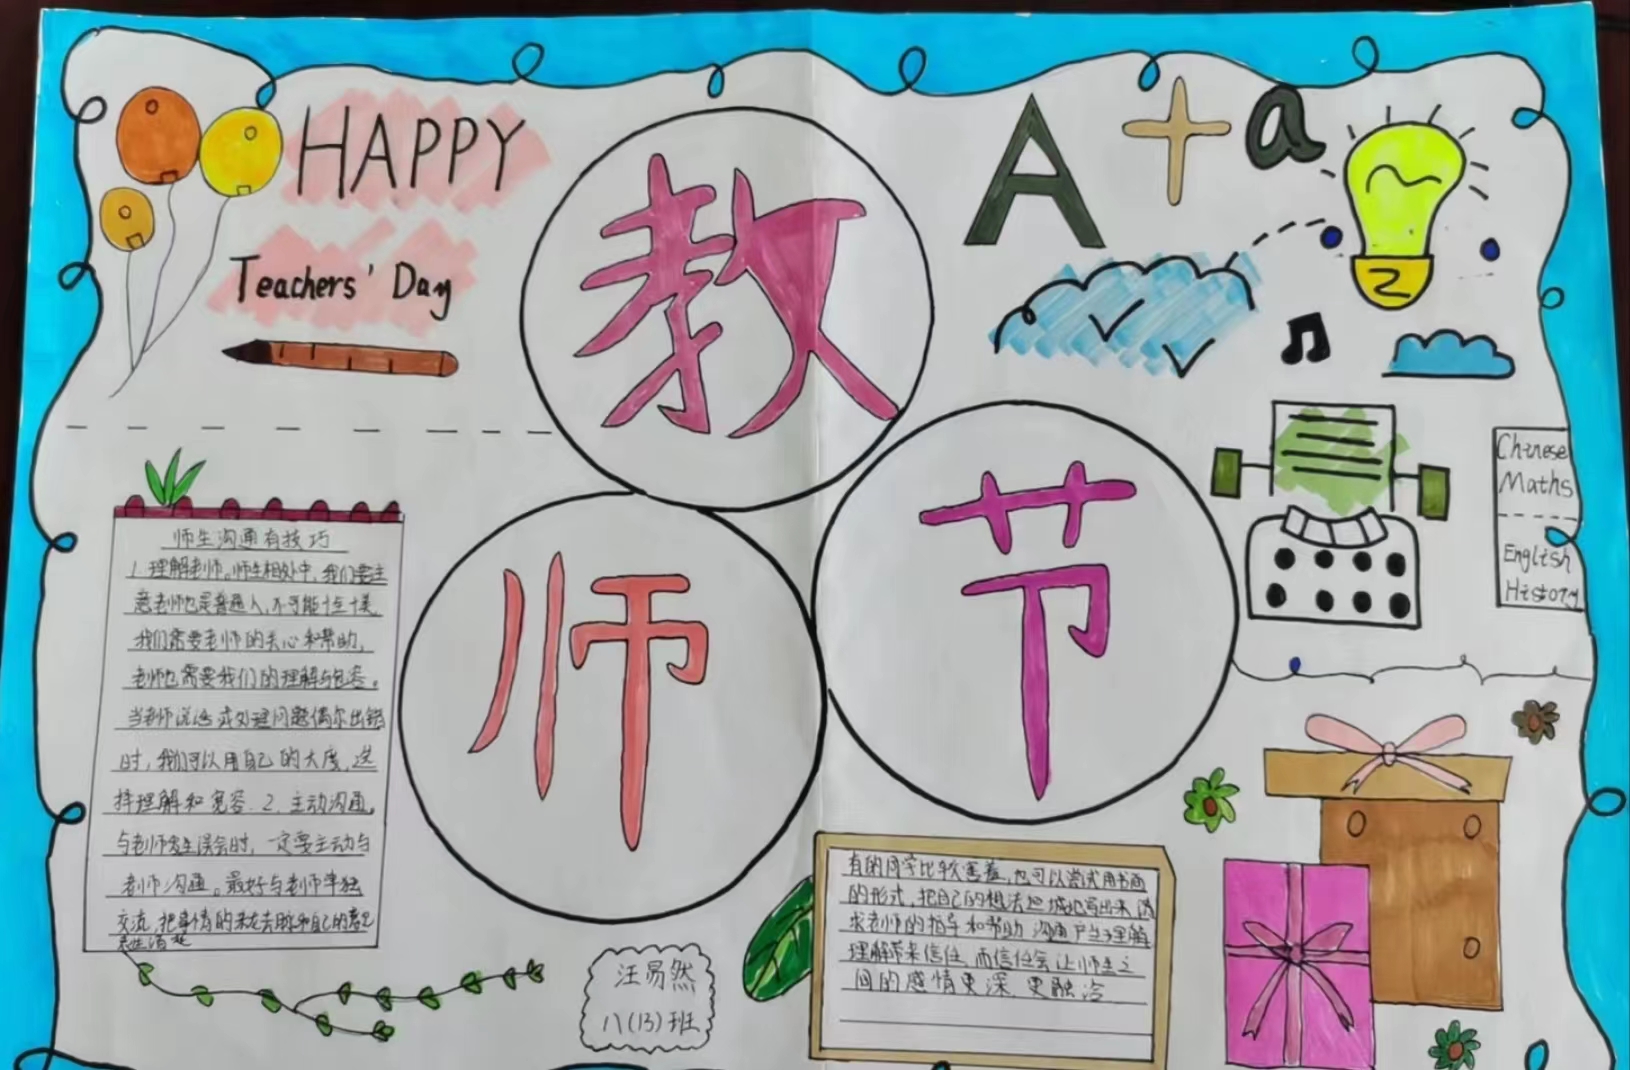 HAPPY
Teachers' Day
教
师
节
A + a
Chinese
Maths
English
History
师生沟通有技巧
1.理解老师。师生相处中,我们要注
意老师也是普通人,不可能十全十美
我们需要老师的关心和帮助,
老师也需要我们的理解与包容。
当老师说话或处理问题偶尔出错
时,我们可以用自己的大度,这
择理解和宽容.2.主动沟通。
与老师发生误会时,一定要主动与
老师沟通。最好与老师单独
交流,把事情的来龙去脉和自己的意见
有的同学比较害羞,也可以尝试用书面
的形式,把自己的想法坦诚地写出来,
求老师的指导和帮助,沟通产生理解
理解带来信任,而信任会让师生之
间的感情更深,更融洽
汪易然
八(13)班